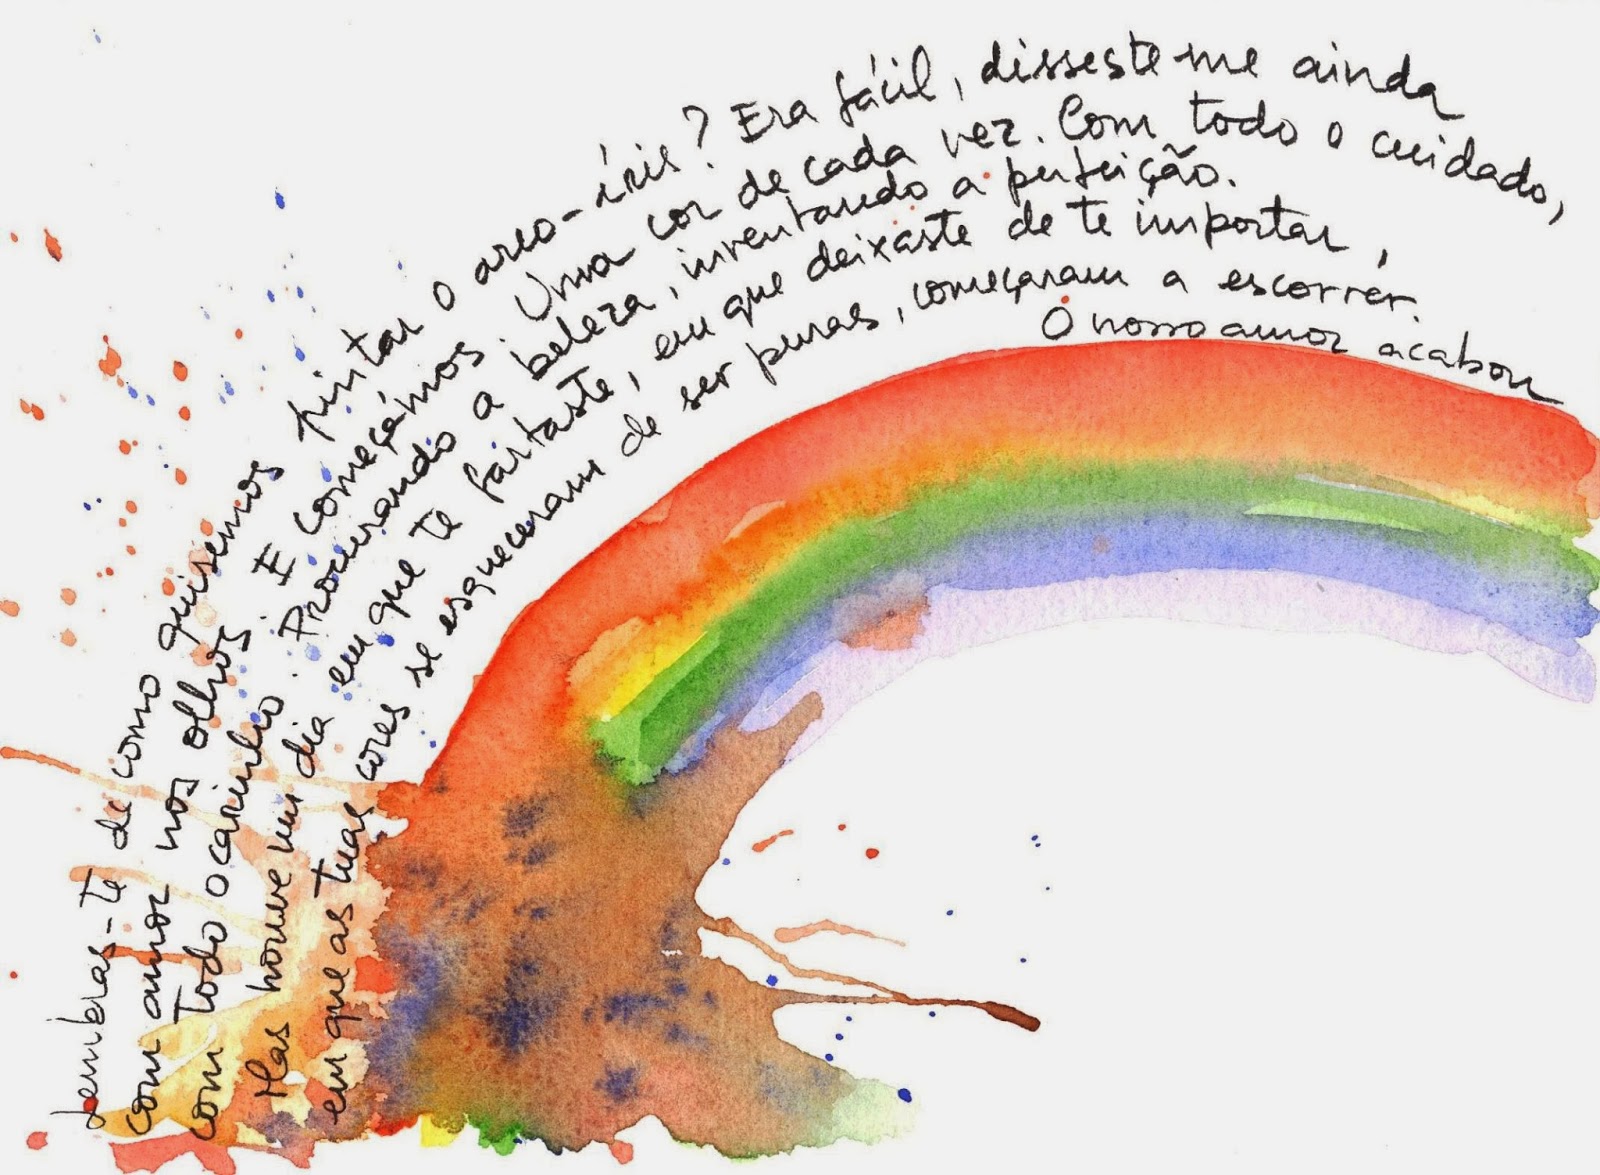 Lembras-te de como quisemos pintar o arco-íris? Era fácil, disseste-me ainda
com amor nos olhos. E começámos. Uma cor de cada vez. Com todo o cuidado,
com todo o carinho. Procurando a beleza, inventando a perfeição.
Mas houve um dia em que te fartaste, em que deixaste de te importar,
em que as tuas cores se esqueceram de ser puras, começaram a escorrer.
O nosso amor acabou